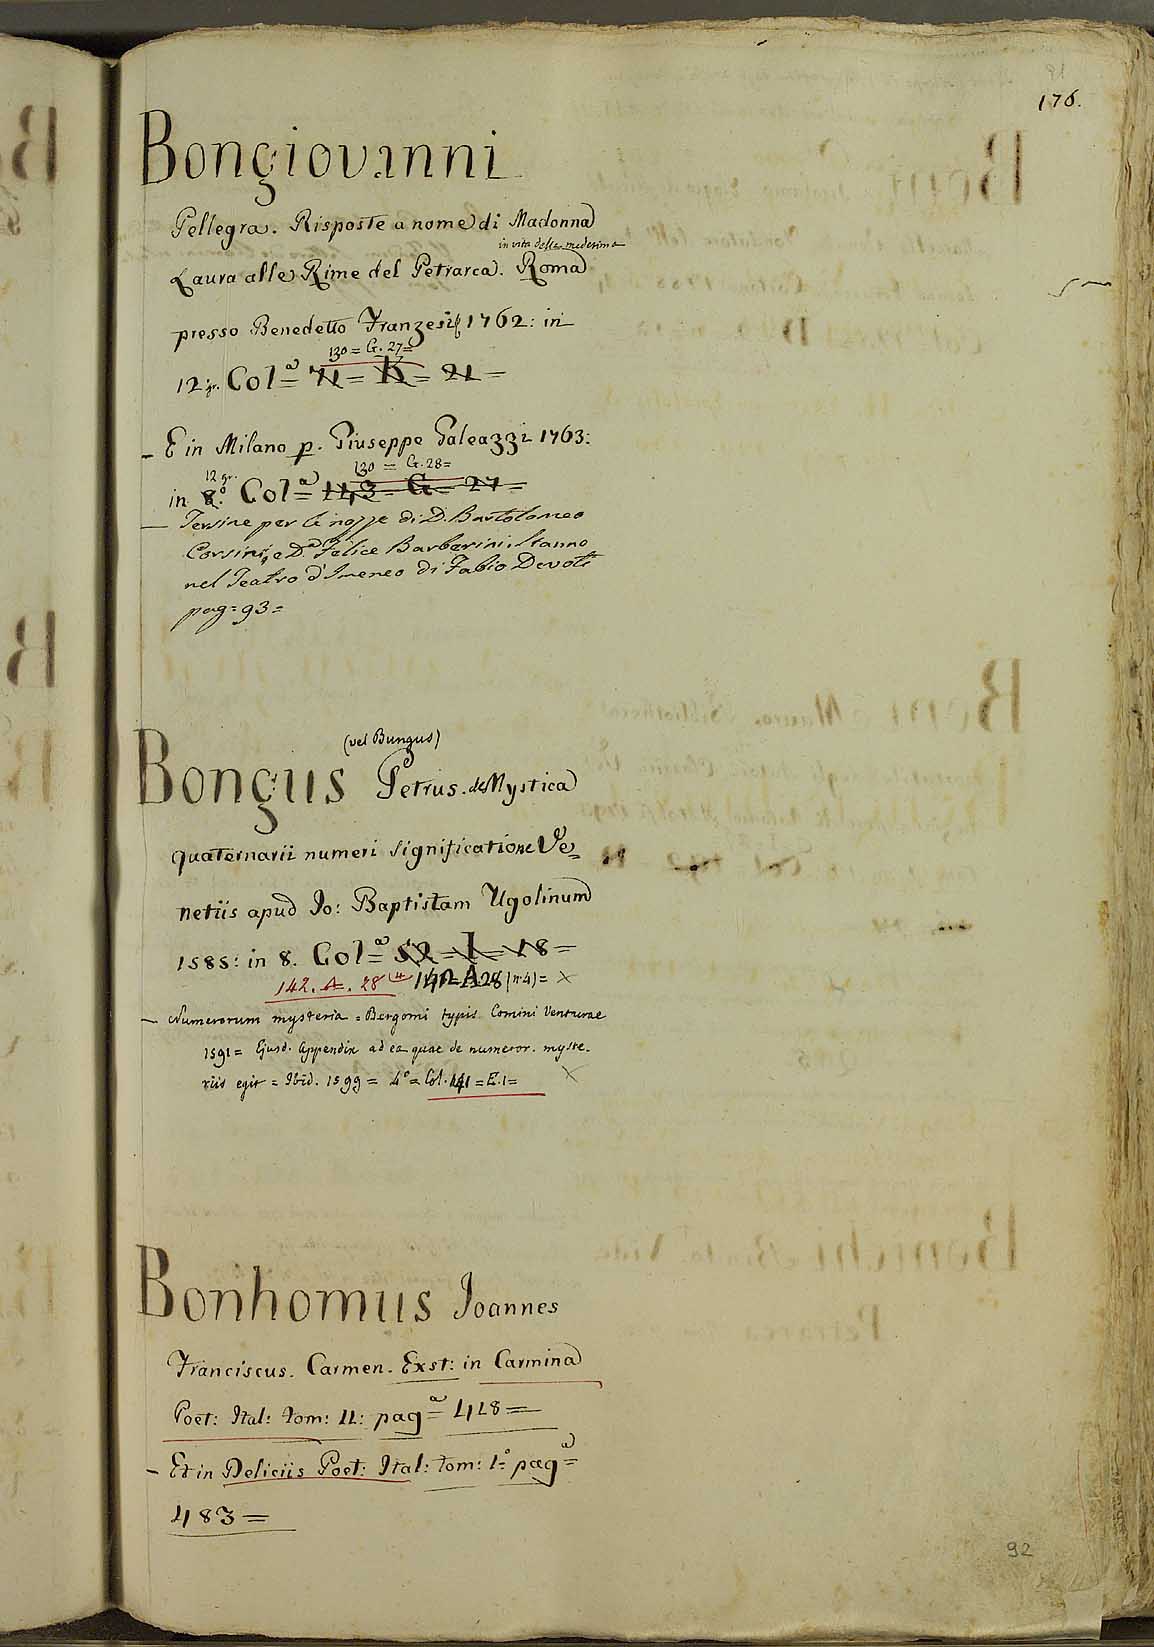 91
176.
Bongiovanni
Pellegra. Risposte a nome di Madonna
in vita della medesima
Laura alle Rime del Petrarca. Roma
presso Benedetto Franzesi 1762: in
130 = G. 27=
12 gr. Col=a 71 = K = 21 =
- E in Milano p. Giuseppe Galeazzi 1763:
12 gr. 130 = G. 28=
in 8.o Col=a 143 = G = 27 =
- Terzine per le nozze di D. Bartolomeo
Corsini, e D.a Felice Barberini. Stanno
nel Teatro d'Imeneo di Fabio Devoti
pag = 93 =
(vel Bungus)
Bongus Petrus. de Mystica
quaternarii numeri significatione Ve=
netiis apud Jo: Baptistam Ugolinum
1585: in 8. Col=a 52 = I = 18 =
142. A. 28 (4 = A 28 (n.4) = X
- Numerorum mysteria = Bergomi typis Comini Venturae
1591 = Ejusd. Appendix ad ea quae de numeror. myste.
riis egit = Ibid. 1599 = 4.o = Col. 141 = E. 1 = X
Bonhomus Joannes
Franciscus. Carmen. Exst: in Carmina
Poet: Ital: tom: II: pag=a 418 =
- Et in Deliciis Poet: Ital: tom: 1.o pag=a
483 =
92